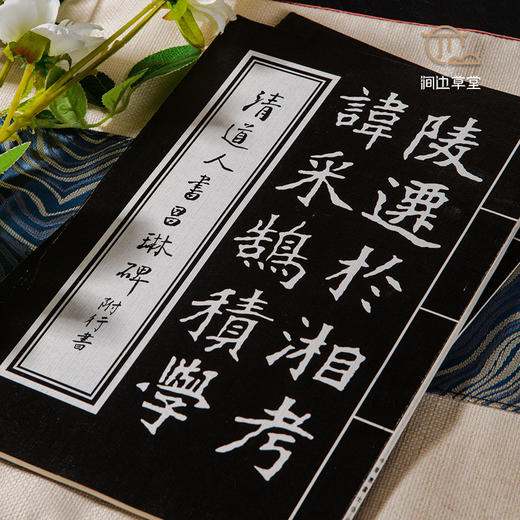 涧边草堂
陵選於湘考
諱采鵠積學
清道人書昌琳碑 附行書